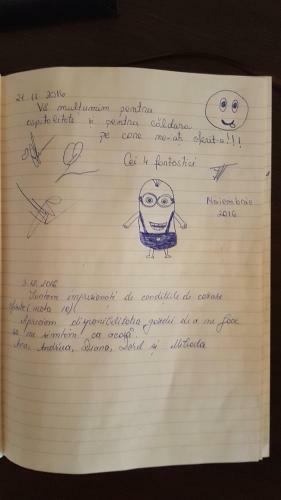 21.11.2016
Vă mulțumim pentru
ospitalitate și pentru căldura
pe care ne-ați oferit-o!!!
Cei 4 fantastici
Noiembrie
2016
3.12.2016
Suntem impresionați de condițiile de cazare
(nota 10)
Apreciem disponibilitatea gazdei de a ne face
să ne simțim ca acasă.
Andreea, Diana, și